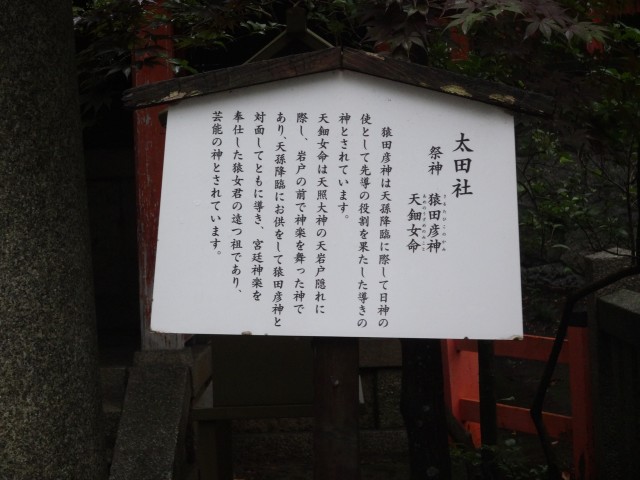 太田社
祭神 猿田彦神
天鈿女命
猿田彦神は天孫降臨に際して日神の
使として先導の役割を果たした導きの
神とされています。
天鈿女命は天照大神の天岩戸隠れに
際し、岩戸の前で神楽を舞った神で
あり、天孫降臨にお供をして猿田彦神と
対面してともに導き、宮廷神楽を
奉仕した猿女君の遠つ祖であり、
芸能の神とされています。